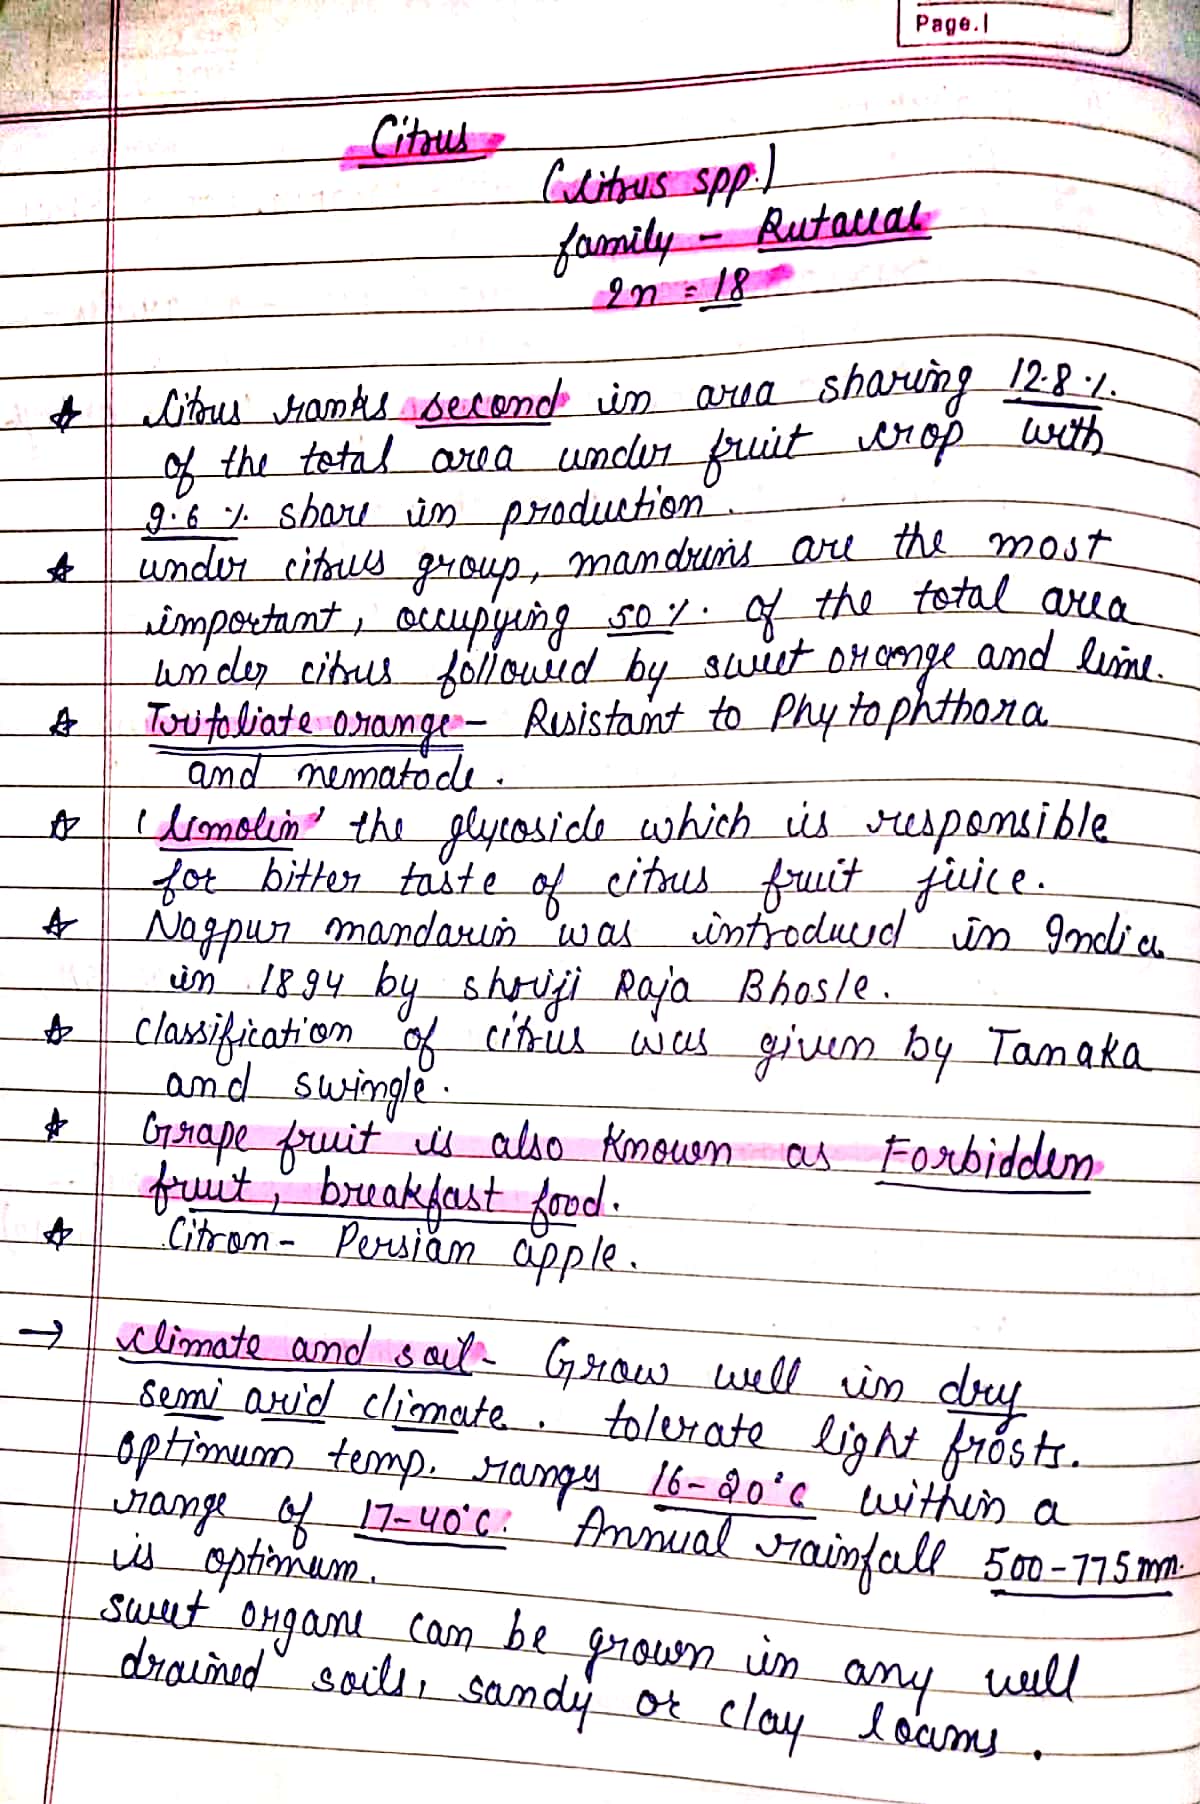 Page.1
Citrus
(Citrus spp.)
family - Rutaceae
2n = 18
Citrus ranks second in area sharing 12.8 %.
of the total area under fruit crop with
9.6 % share in production.
under citrus group, mandrins are the most
important, occupying 50 %. of the total area
under citrus followed by sweet orange and lime.
Trifoliate orange - Resistant to Phytophthora
and nematode.
'Limolin' the glycoside which is responsible
for bitter taste of citrus fruit juice.
Nagpur mandarin was introduced in India
in 1894 by shriji Raja Bhosle.
Classification of citrus was given by Tanaka
and swingle.
Grape fruit is also known as Forbidden
fruit, breakfast food.
Citron - Persian apple.
→ climate and soil - Grow well in dry
semi arid climate. tolerate light frosts.
optimum temp. rangy 16-20°C within a
range of 17-40°C. Annual rainfall 500-775mm.
is optimum.
sweet organe can be grown in any well
drained soils, sandy or clay loams.